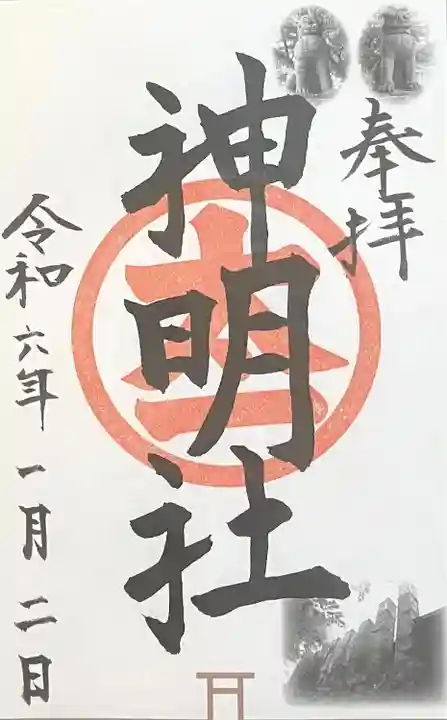 奉拝
神明社
令和六年一月二日